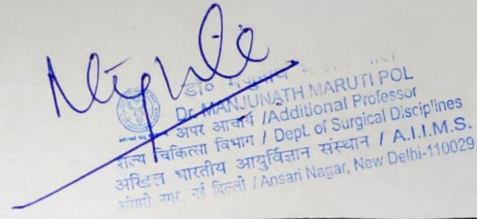 डा०
Dr. MANJUNATH MARUTI POL
अपर आचार्य / Additional Professor
शल्य चिकित्सा विभाग / Dept. of Surgical Disciplines
अखिल भारतीय आयुर्विज्ञान संस्थान / A.I.I.M.S.
अंसारी नगर, नई दिल्ली / Ansari Nagar, New Delhi-110029